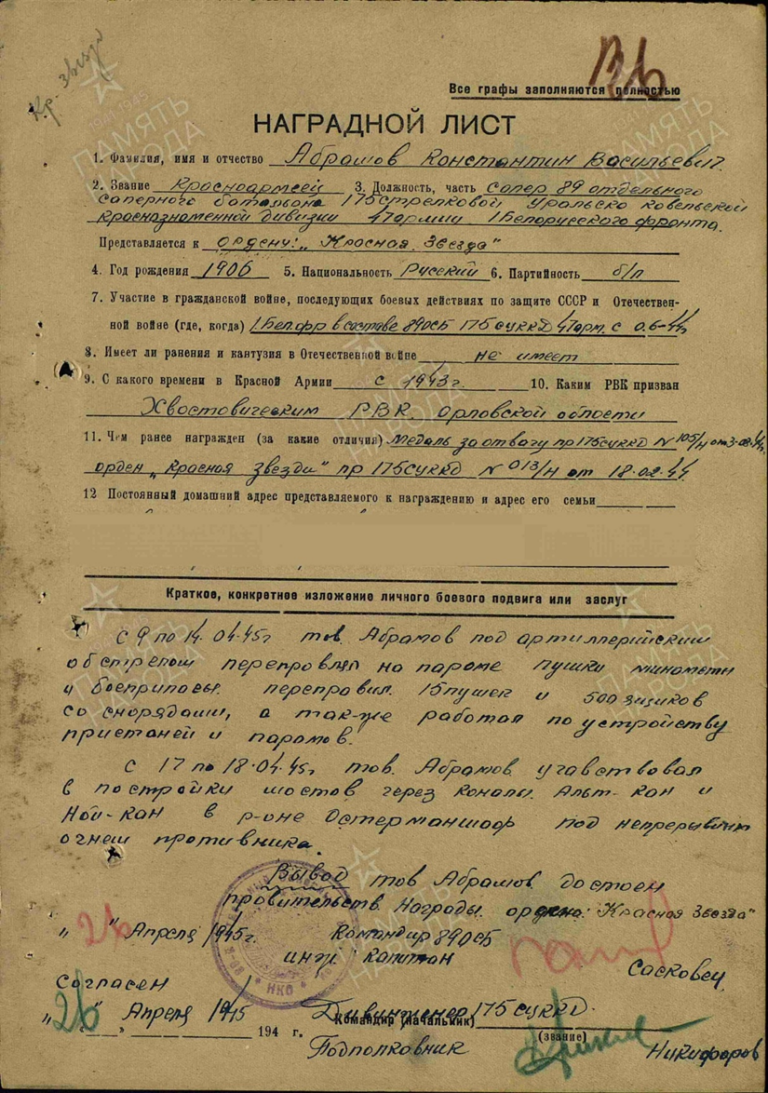 Кр. звезд
Все графы заполняются полностью
НАГРАДНОЙ ЛИСТ
1. Фамилия, имя и отчество Абрамов Константин Васильевич.
2. Звание Красноармеец 3. Должность, часть сапер 89 отдельного
саперного батальона 175 стрелковой Уральско ковельской
краснознаменной дивизии 47 армии 1 Белорусского фронта.
Представляется к ордену: „Красная Звезда"
4. Год рождения 1906 5. Национальность Русский 6. Партийность б/п
7. Участие в гражданской войне, последующих боевых действиях по защите СССР и Отечествен-
ной войне (где, когда) 1 Бел.фр в составе 89 ОСБ 175 СУККД 47 арм. с 06-44г
8. Имеет ли ранения и кантузия в Отечественной войне не имеет
9. С какого времени в Красной Армии с 1943 г. 10. Каким РВК призван
Хвостовическим РВК Орловской области
11. Чем ранее награжден (за какие отличия) Медаль за отвагу пр 175 СУККД N 105/н от 3-08-44г.
орден „Красная звезда" пр 175 СУККД N 013/н от 18.02.44
12 Постоянный домашний адрес представляемого к награждению и адрес его семьи
Краткое, конкретное изложение личного боевого подвига или заслуг
С 9 по 14.04.45г тов. Абрамов под артиллерийским
обстрелом переправлял на пароме пушки минометы
и боеприпасы. переправил 15 пушек и 500 ящиков
со снорядами, а так-же работал по устройству
пристаней и парамов.
С 17 по 18.04.45г тов. Абрамов учавствовал
в постройки мостов через каналы Альт-кан и
Ной-кан в р-оне Остерманшоф под непрерывным
огнем противника.
Вывод тов Абрамов достоен
правительств. Награды. ордена: "Красная Звезда"
„26" Апреля 1945г. Командир 89 ОСБ
инж капитан Сасковец
Согласен
„26" Апреля 1945 194 г. Дивинженер 175 СУККД.
Командир (начальник)
(звание)
Подполковник Никифоров
НКО
ПАМЯТЬ
НАРОДА